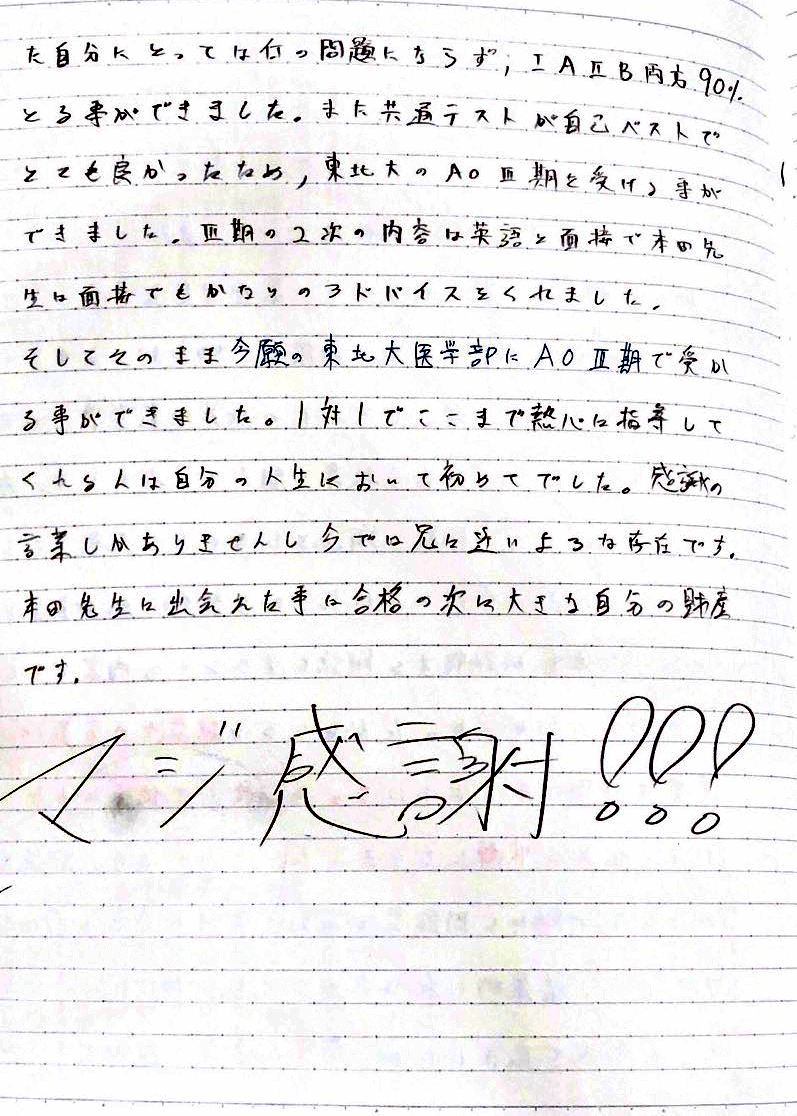 た自分にとっては何の問題にならず,ⅠAⅡB両方90%
とる事ができました。また共通テストが自己ベストで
とても良かったため,東北大のAOⅢ期を受ける事が
できました。Ⅲ期の2次の内容は英語と面接で本田先
生は面接でもかなりのアドバイスをくれました。
そしてそのまま今願の東北大医学部にAOⅢ期で受か
る事ができました。1対1でここまで熱心に指導して
くれる人は自分の人生において初めてでした。感謝の
言葉しかありませんし今では兄に近いような存在です。
本田先生に出会えた事は合格の次に大きな自分の財産
です。
マジ感謝!!!